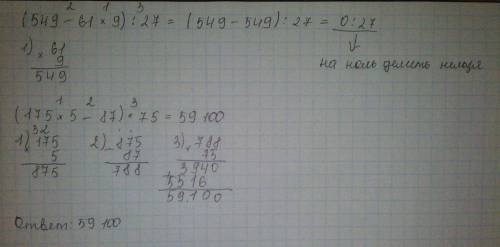 2 1 3
(549 - 61 × 9) : 27 = (549 - 549) : 27 = 0 : 27
↓
на ноль делить нельзя
1) × 61
9
549
1 2 3
(175 × 5 - 87) · 75 = 59 100
32
1) × 175
5
875
2) - 875
87
788
3) × 788
75
3940
5516
59100
Ответ: 59 100